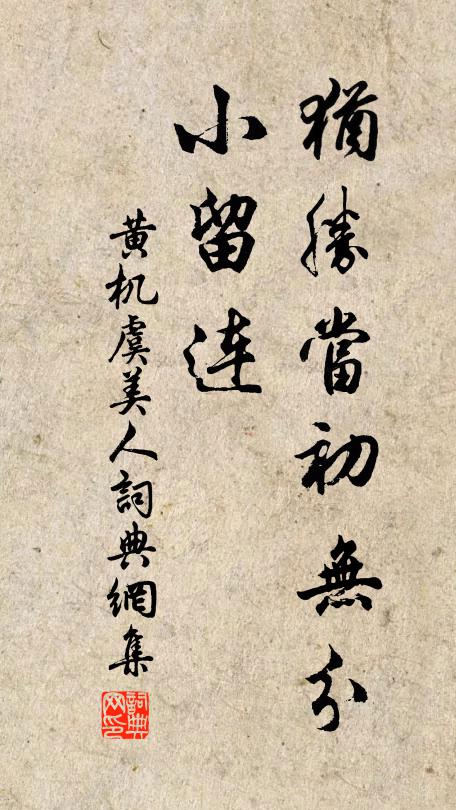 猶勝當初無分
小留連
黄机虞美人詞典網集
詞典
网印